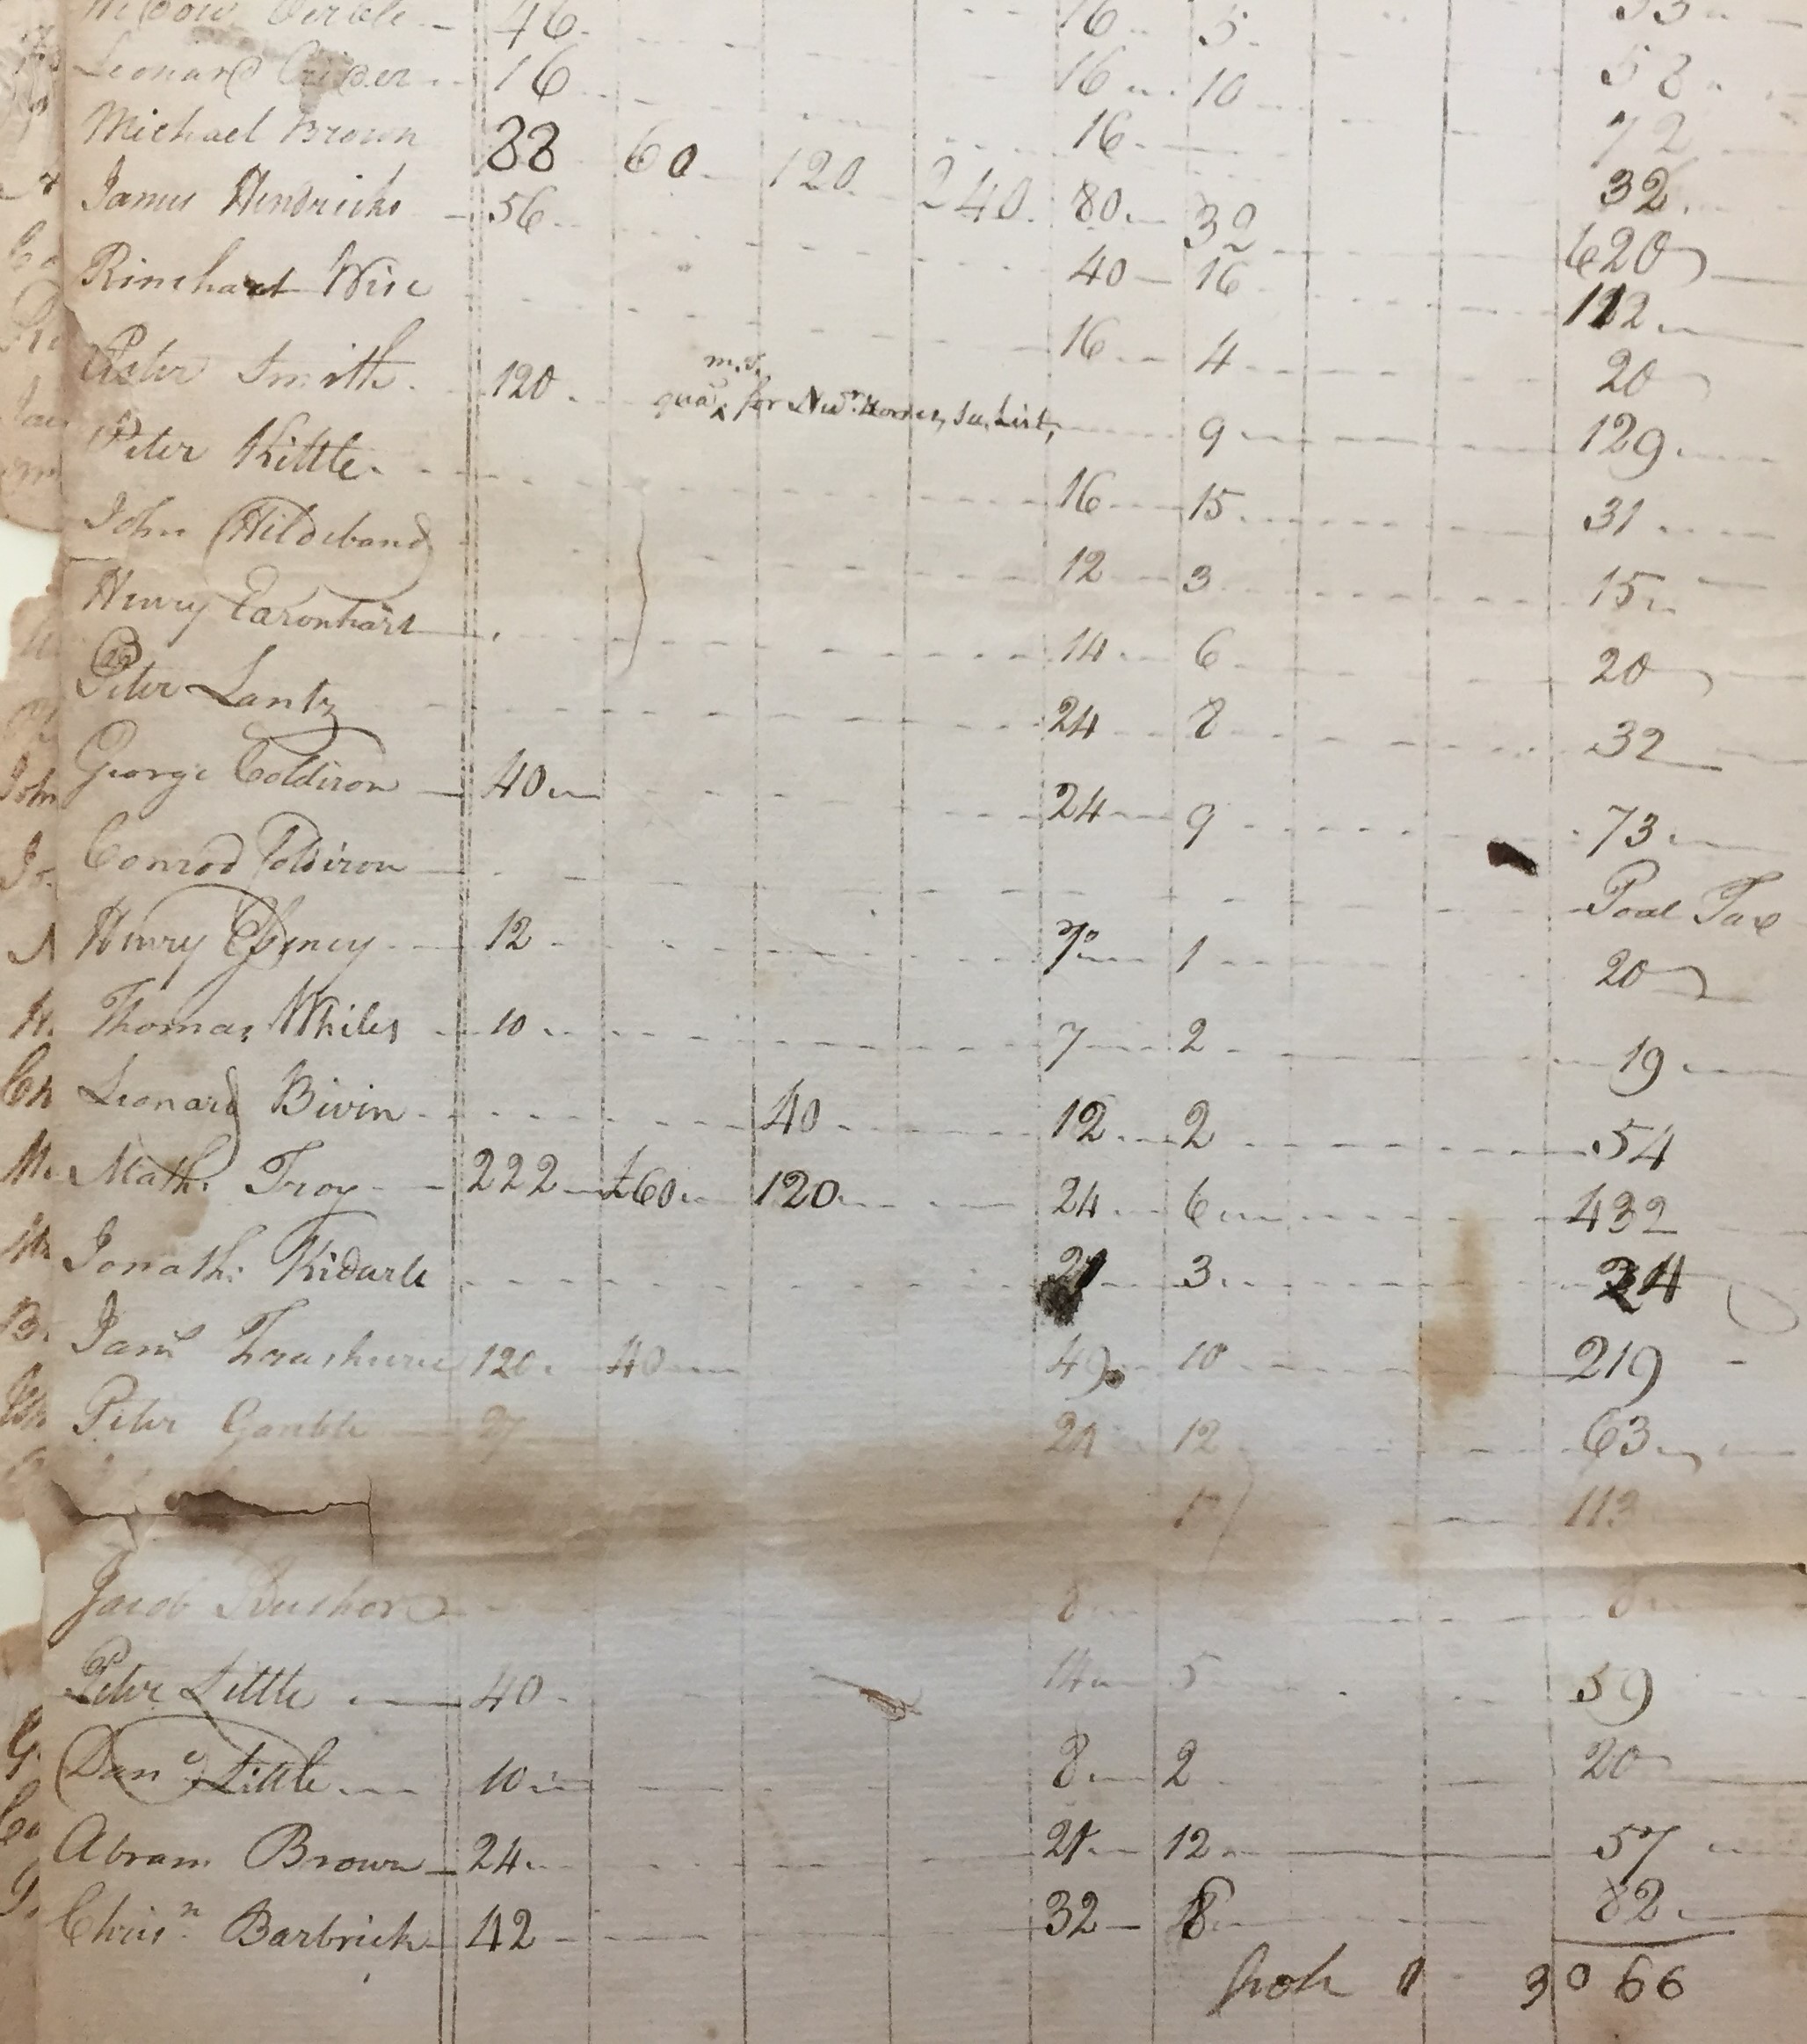 53
16 5 58
Widow Verble 46 16 10 72
Leonard Crider 16 16 32
Michael Brown 88 60 120 240 80 32 620
James Hendricks 56 40 16 112
Rinehart Wise 16 4 20
m.s.
Peter Smith 120 qua for New Horses, See List, 9 129
Peter Kittle 16 15 31
John Hildeband 12 3 15
Henry Earonhart 14 6 20
Peter Lantz 24 8 32
George Coldiron 40 24 9 73
Conrod Coldiron Poal Tax
Henry 12 7 1 20
Thomas Whiles 10 7 2 19
Leonard Bivin 40 12 2 54
Math. Troy 222 £60 120 24 6 432
Jonath: 21 3 24
120 40 49 10 219
Peter Gamble 27 24 12 63
17 113
Jacob Rushor 8 8
Peter Little 40 14 5 59
Danl Little 10 8 2 20
Abram Brown 24 21 12 57
Chrisn. Barbrick 42 32 8 82
9066